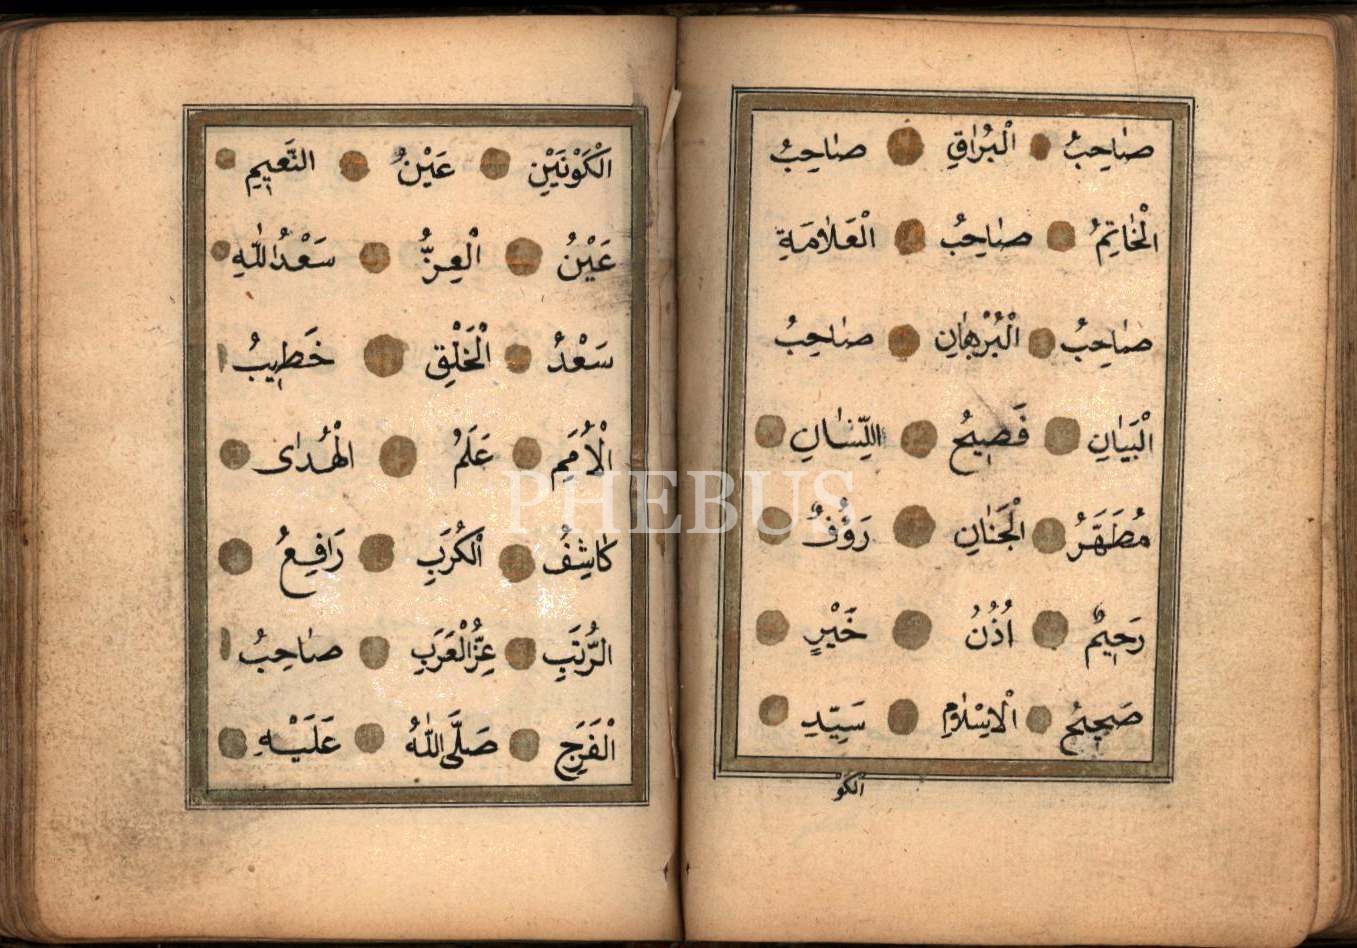 صَاحِبُ الْبُرَاقِ صَاحِبُ
الْخَاتِمُ صَاحِبُ الْعَلَامَةِ
صَاحِبُ الْبُرْهَانِ صَاحِبُ
الْبَيَانِ فَصِيحُ اللِّسَانِ
مُطَهَّرُ الْجَنَانِ رَؤُفٌ
رَحِيمٌ اُذُنُ خَيْرٍ
صَحِيحُ الْاِسْلَامِ سَيِّدِ
الكو
اَلْكَوْنَيْنِ عَيْنُ النَّعِيمِ
عَيْنُ الْعِزُّ سَعْدُ اللّٰهِ
سَعْدُ الْخَلْقِ خَطِيبُ
الْاُمَمِ عَلَمُ الْهُدَاى
كَاشِفُ اَلْكُرَبِ رَافِعُ
الرُّتَبِ عِزُّ الْعَرَبِ صَاحِبُ
الْفَرَجِ صَلَّى اللّٰهُ عَلَيْهِ
PHEBUS